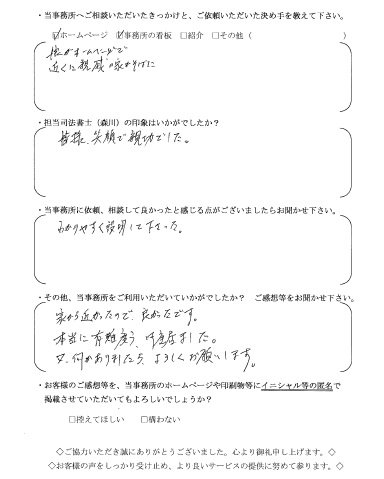 ・当事務所へご相談いただいたきっかけと、ご依頼いただいた決め手を教えて下さい。
☑ホームページ ☑事務所の看板 □紹介 □その他（
がホームページで
近くに
・担当司法書士（森川）の印象はいかがでしたか？
皆様、笑顔で親切でした。
・当事務所に依頼、相談して良かったと感じる点がございましたらお聞かせ下さい。
わかりやすく説明して下さった。
・その他、当事務所をご利用いただいていかがでしたか？ ご感想等をお聞かせ下さい。
家から近かったので、良かったです。
本当に有難度う、御座居ました。
又、何かありましたら、よろしくお願いします。
・お客様のご感想等を、当事務所のホームページや印刷物等にイニシャル等の匿名で
掲載させていただいてもよろしいでしょうか？
□控えてほしい □構わない
◇ご協力いただき誠にありがとうございました。心より御礼申し上げます。◇
◇お客様の声をしっかり受け止め、より良いサービスの提供に努めて参ります。◇